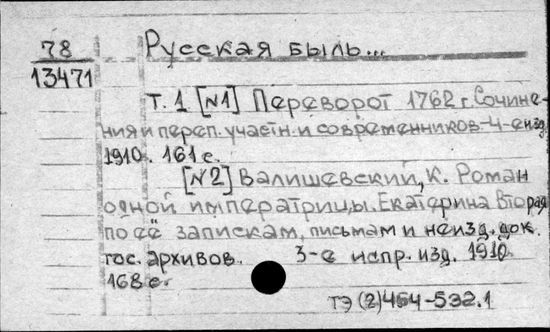 78
13471
Русская быль...
т. 1 [№1] Переворот 1762 г. Сочине-
ния и переп. участн. и современников. 4-е изд.
1910. 161 с.
[№2] Валишевский, К. Роман
одной императрицы. Екатерина Вторая
по её запискам, письмам и неизд. док.
гос. архивов. 3-е испр. изд. 1910.
168 с.
ТЭ (2)454-532.1